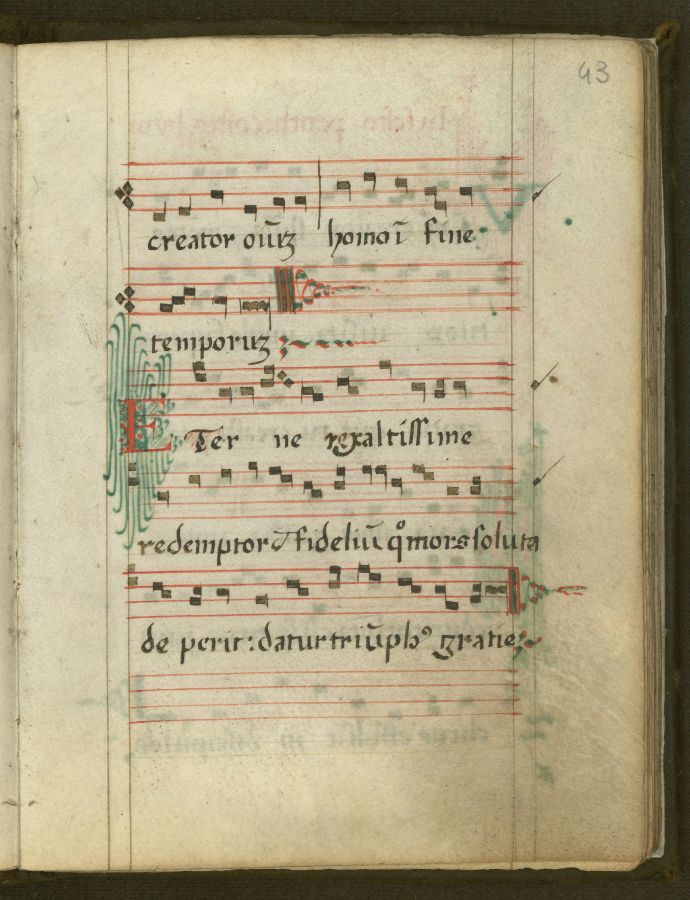 43
creator oīuꝫ homo ī fine
temporuꝫ
ETer ne rex altissime
redemptor ⁊ fideliū q̊ mors soluta
de perit: datur triūphꝰ gratie